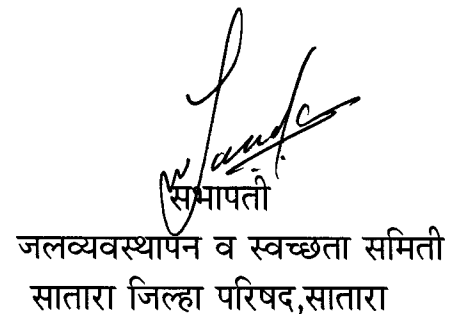 सभापती
जलव्यवस्थापन व स्वच्छता समिती
सातारा जिल्हा परिषद,सातारा